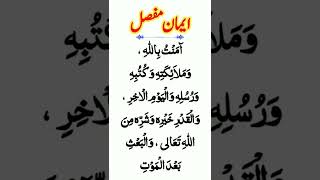 ایمان مفصل
آمَنْتُ بِاللّٰهِ ،
وَمَلَائِكَتِهٖ وَ كُتُبِهٖ
وَرُسُلِهٖ وَالْيَوْمِ الْاٰخِرِ ،
وَالْقَدْرِ خَيْرِهٖ وَشَرِّهٖ مِنَ
اللّٰهِ تَعَالٰى ، وَالْبَعْثِ
بَعْدَ الْمَوْتِ